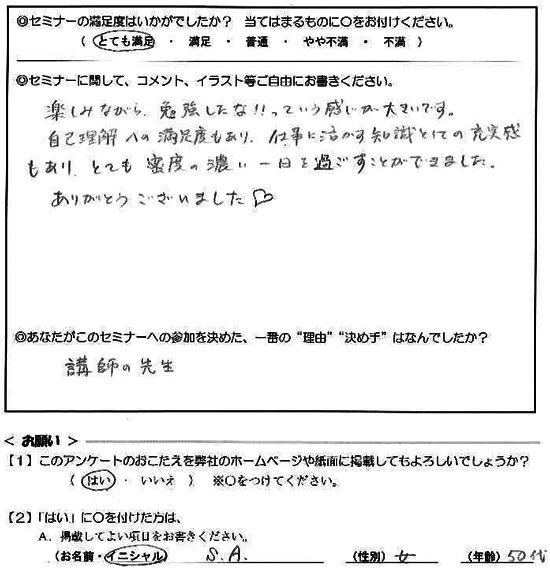 ◎セミナーの満足度はいかがでしたか？ 当てはまるものに○をお付けください。
( とても満足 ・ 満足 ・ 普通 ・ やや不満 ・ 不満 )
◎セミナーに関して、コメント、イラスト等ご自由にお書きください。
楽しみながら、勉強したな!!っていう感じが大きいです。
自己理解への満足度もあり、仕事に活かす知識としての充実感
もあり、とても密度の濃い一日を過ごすことができました。
ありがとうございました♡
◎あなたがこのセミナーへの参加を決めた、一番の“理由”“決め手”はなんでしたか？
講師の先生
＜ お願い ＞
【１】このアンケートのおこたえを弊社のホームページや紙面に掲載してもよろしいでしょうか？
( はい ・ いいえ ) ※○をつけてください。
【２】「はい」に○を付けた方は、
A．掲載してよい項目をお書きください。
(お名前・イニシャル) S.A. (性別) 女 (年齢) 50代